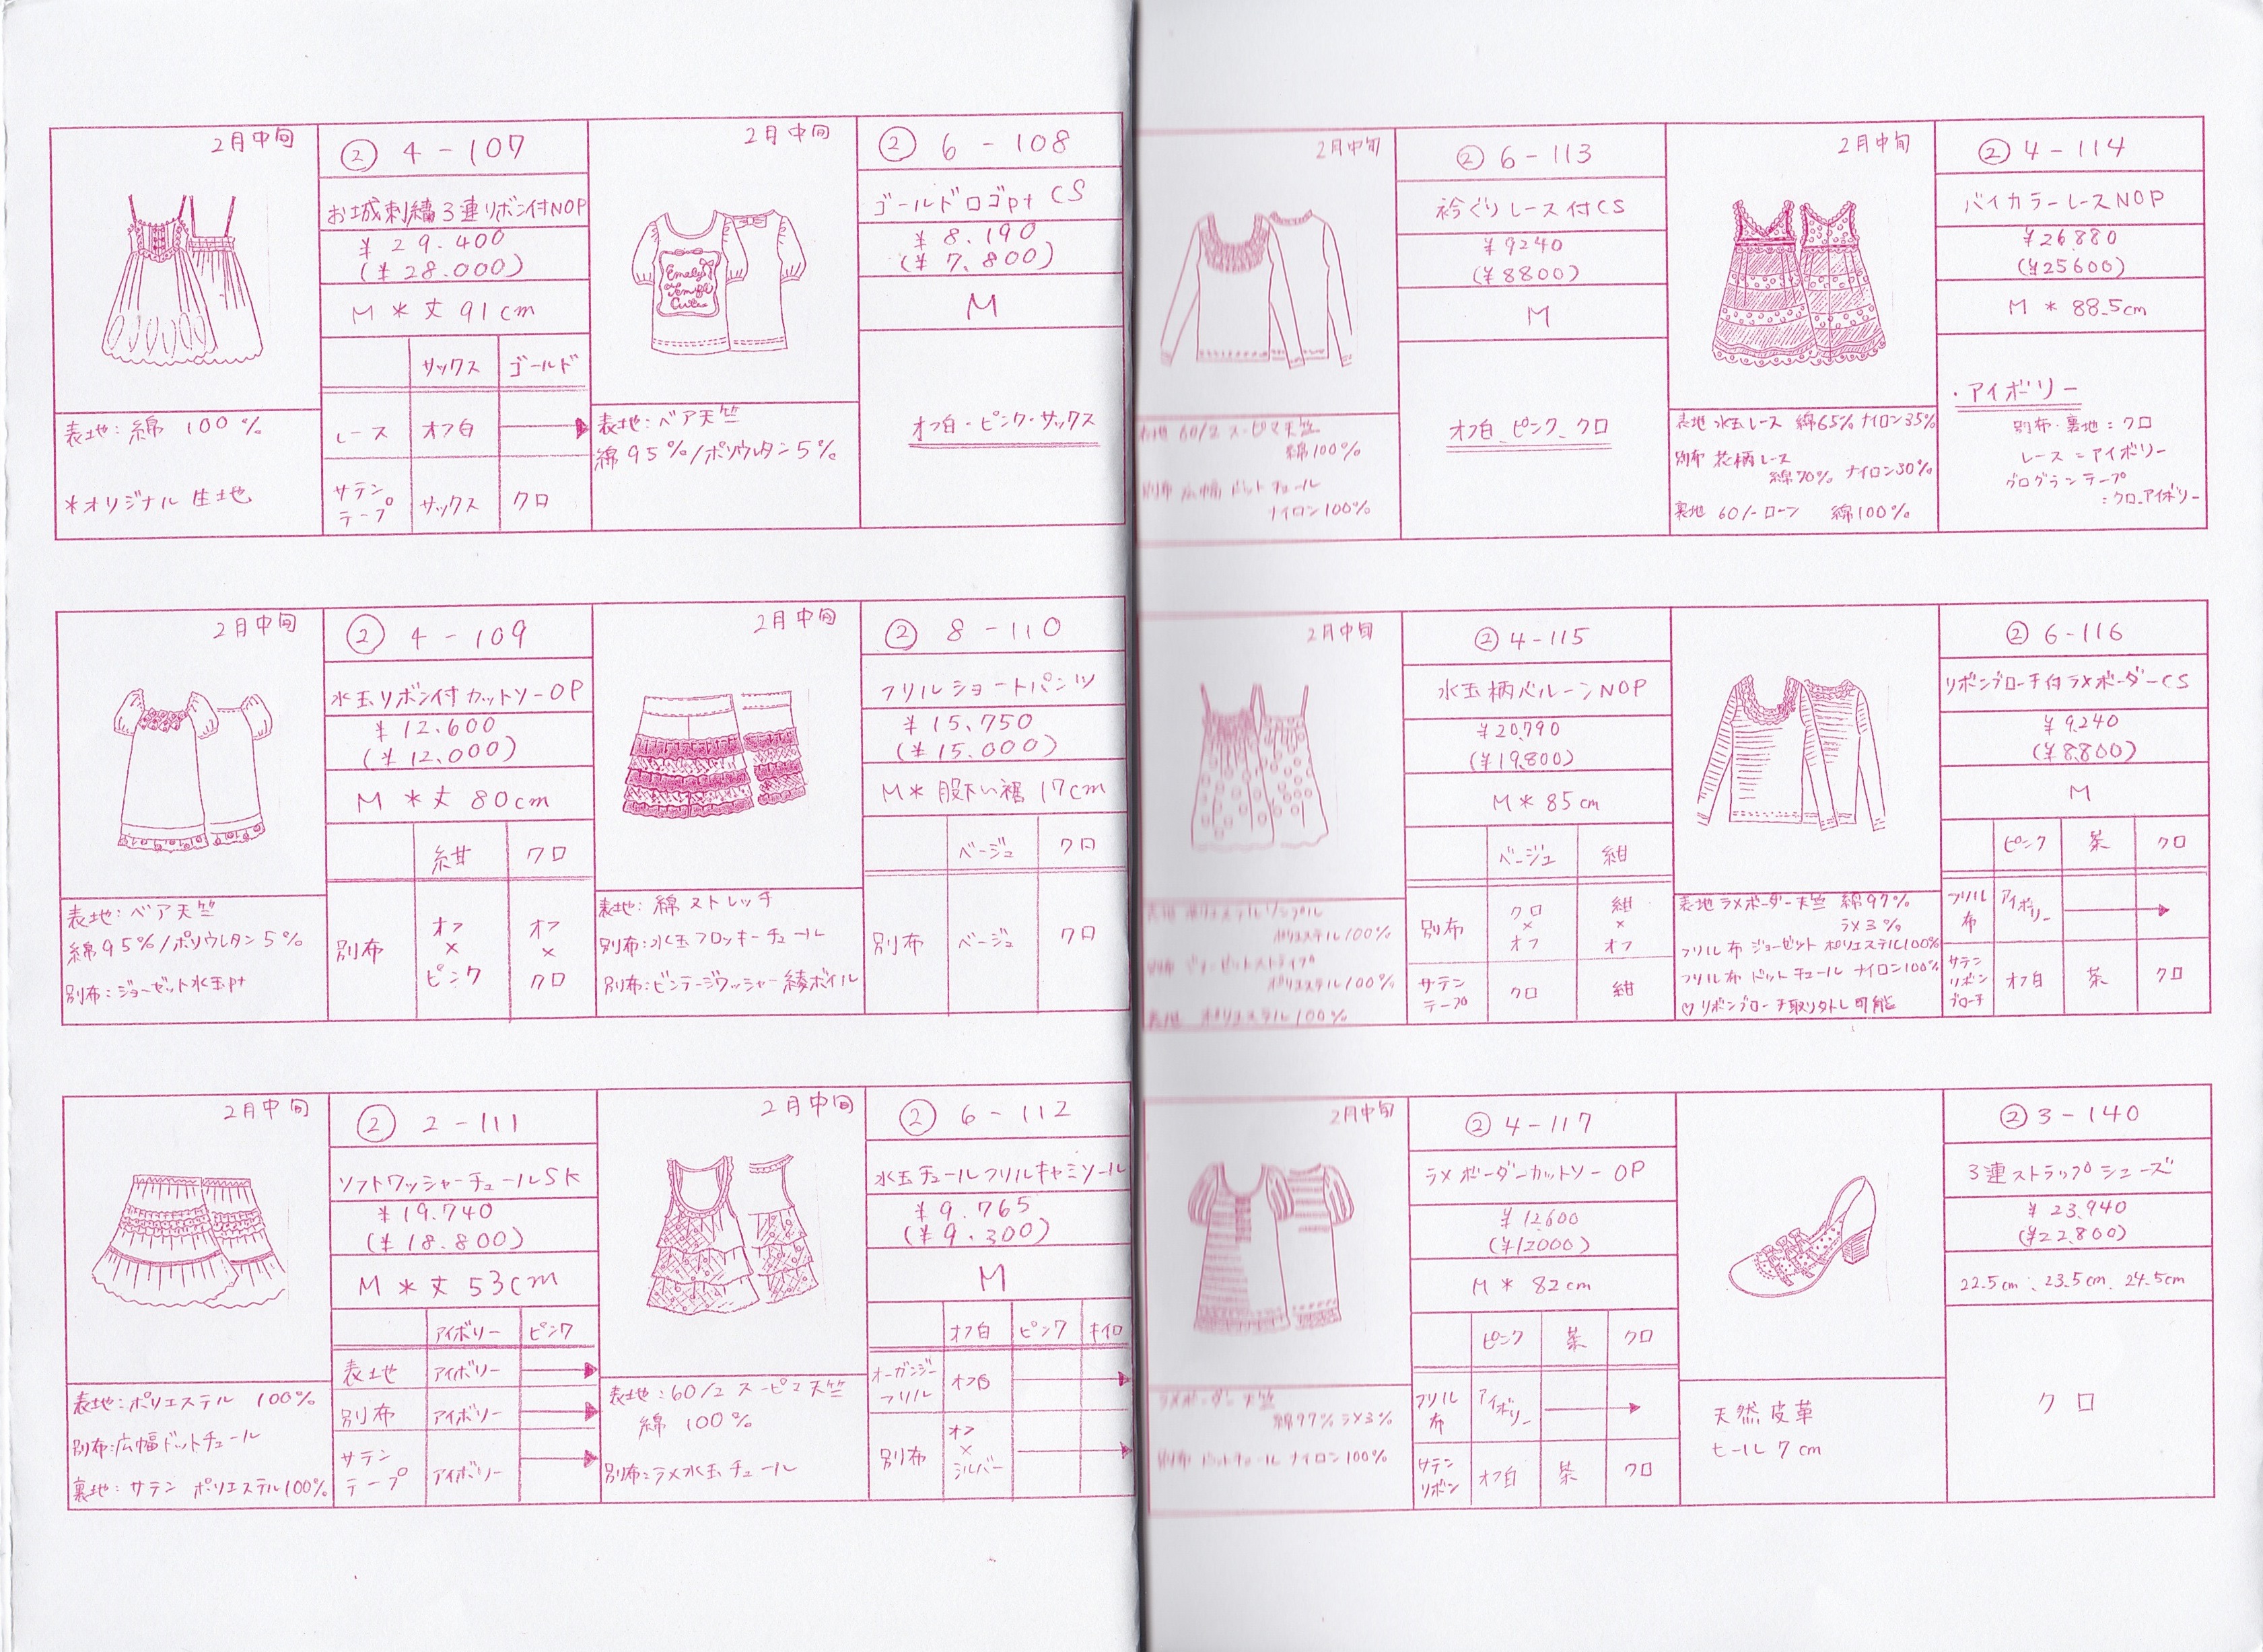 2月中旬
② 4-107
お城刺繍3連リボン付NOP
¥29.400
(¥28.000)
M * 丈 91cm
サックス ゴールド
レース オフ白
サテンテープ サックス クロ
表地:綿 100%
*オリジナル生地
2月中旬
② 6-108
ゴールドロゴpt CS
¥8.190
(¥7.800)
M
オフ白・ピンク・サックス
Emily Temple Cute
表地:ベア天竺
綿95%/ポリウレタン5%
2月中旬
② 4-109
水玉リボン付カットソーOP
¥12.600
(¥12.000)
M * 丈 80cm
紺 クロ
別布 オフ×ピンク オフ×クロ
表地:ベア天竺
綿95%/ポリウレタン5%
別布:ジョーゼット水玉pt
2月中旬
② 8-110
フリルショートパンツ
¥15.750
(¥15.000)
M * 股下い裾 17cm
ベージュ クロ
別布 ベージュ クロ
表地:綿ストレッチ
別布:水玉フロッキーチュール
別布:ビンテージワッシャー綾ボイル
2月中旬
② 2-111
ソフトワッシャーチュールSK
¥19.740
(¥18.800)
M * 丈 53cm
アイボリー ピンク
表地 アイボリー
別布 アイボリー
サテンテープ アイボリー
表地:ポリエステル 100%
別布:広幅ドットチュール
裏地:サテン ポリエステル100%
2月中旬
② 6-112
水玉チュールフリルキャミソール
¥9.765
(¥9.300)
M
オフ白 ピンク キイロ
オーガンジーフリル オフ白
別布 オフ×シルバー
表地:60/2 スーピマ天竺
綿 100%
別布:ラメ水玉チュール
2月中旬
② 6-113
衿ぐりレース付CS
¥9240
(¥8800)
M
オフ白 ピンク クロ
表地 60/2 スーピマ天竺
綿100%
別布 広幅ドットチュール
ナイロン100%
2月中旬
② 4-114
バイカラーレースNOP
¥26880
(¥25600)
M * 88.5cm
・アイボリー
別布・裏地:クロ
レース=アイボリー
グログランテープ
:クロ、アイボリー
表地 水玉レース 綿65% ナイロン35%
別布 花柄レース
綿70% ナイロン30%
裏地 60/-ローン 綿100%
2月中旬
② 4-115
水玉柄バルーンNOP
¥20,790
(¥19,800)
M * 85cm
ベージュ 紺
別布 クロ×オフ 紺×オフ
サテンテープ クロ 紺
ポリエステル100%
ポリエステル100%
ポリエステル100%
② 6-116
リボンブローチ付ラメボーダーCS
¥9,240
(¥8,800)
M
ピンク 茶 クロ
フリル布 アイボリー
サテンリボンブローチ オフ白 茶 クロ
表地 ラメボーダー天竺 綿97%
ラメ3%
フリル布 ジョーゼット ポリエステル100%
フリル布 ドットチュール ナイロン100%
♡リボンブローチ取り外し可能
2月中旬
② 4-117
ラメボーダーカットソーOP
¥12600
(¥12000)
M * 82cm
ピンク 茶 クロ
フリル布 アイボリー
サテンリボン オフ白 茶 クロ
ラメボーダー天竺
綿97% ラメ3%
別布 ドットチュール ナイロン100%
② 3-140
3連ストラップシューズ
¥23,940
(¥22,800)
22.5cm、23.5cm、24.5cm
クロ
天然皮革
ヒール7cm